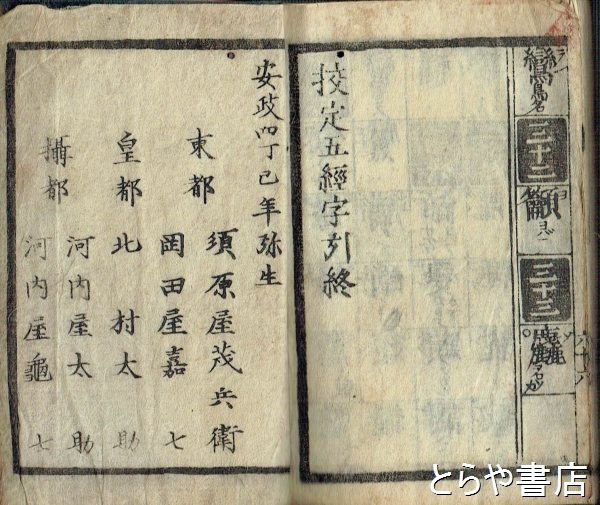 鸞
鳥名
三十二
籲
ヨブ
三十三
麤
六十六
挍定五經字引終
安政四丁巳年弥生
東都
須原屋茂兵衛
岡田屋嘉七
皇都
北村太助
攝都
河内屋太助
河内屋龜七
とらや書店